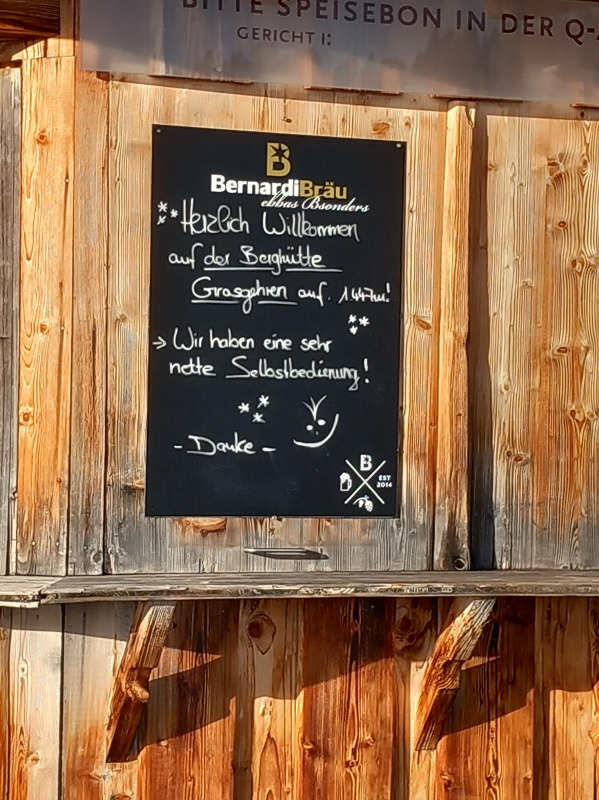 BITTE SPEISEBON IN DER Q-
GERICHT 1:
B
BernardiBräu
ebbas Bsonders
Herzlich Willkommen
auf der Berghütte
Grasgehren auf. 1447m!
→ Wir haben eine sehr
nette Selbstbedienung!
- Danke -
B
EST
2014